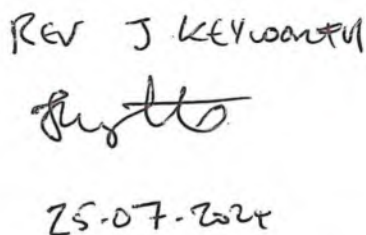 REV J KEYWORTH
25-07-2024